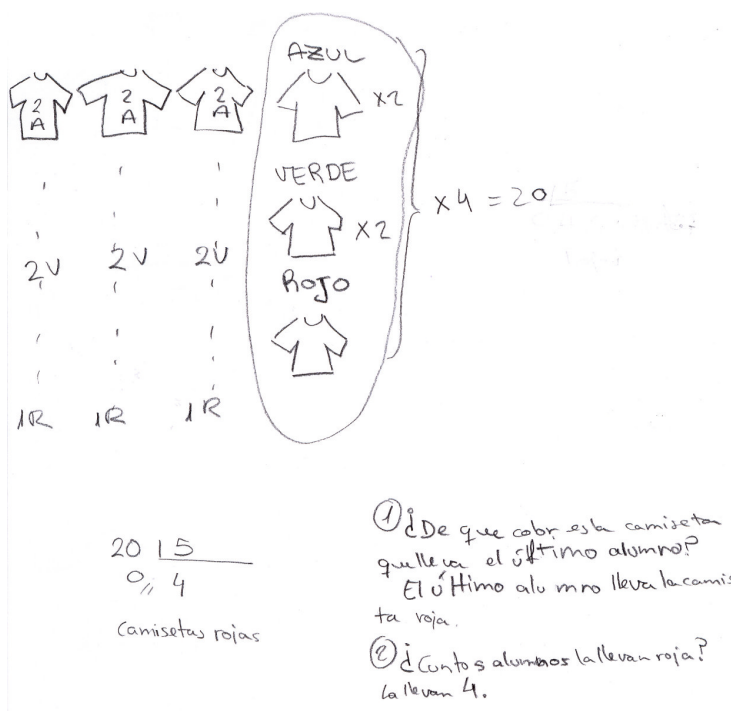 AZUL
2 A 2 A 2 A x2
VERDE
x4 = 20
2V 2V 2V x2
ROJO
1R 1R 1R
20 5
0,, 4
camisetas rojas
① ¿De que color es la camiseta
que lleva el último alumno?
El último alumno lleva la camis
ta roja.
② ¿Cuntos alumnos la llevan roja?
La llevan 4.